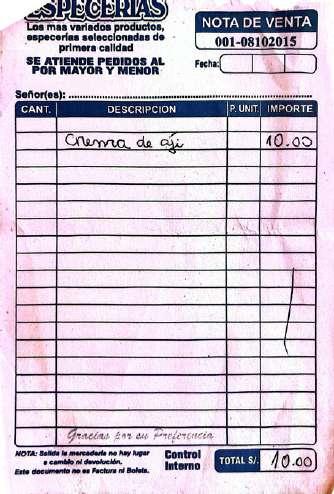 ESPECERIAS
Los mas variados productos,
especerias seleccionadas de
primera calidad
SE ATIENDE PEDIDOS AL
POR MAYOR Y MENOR
NOTA DE VENTA
001-08102015
Fecha:
Señor(es):
CANT. DESCRIPCION P. UNIT. IMPORTE
de aji 10.00
Gracias por su Preferencia
NOTA: Salida la mercaderia no hay lugar
a cambio ni devolución.
Este documento no es Factura ni Boleta.
Control
Interno
TOTAL S/. 10.00